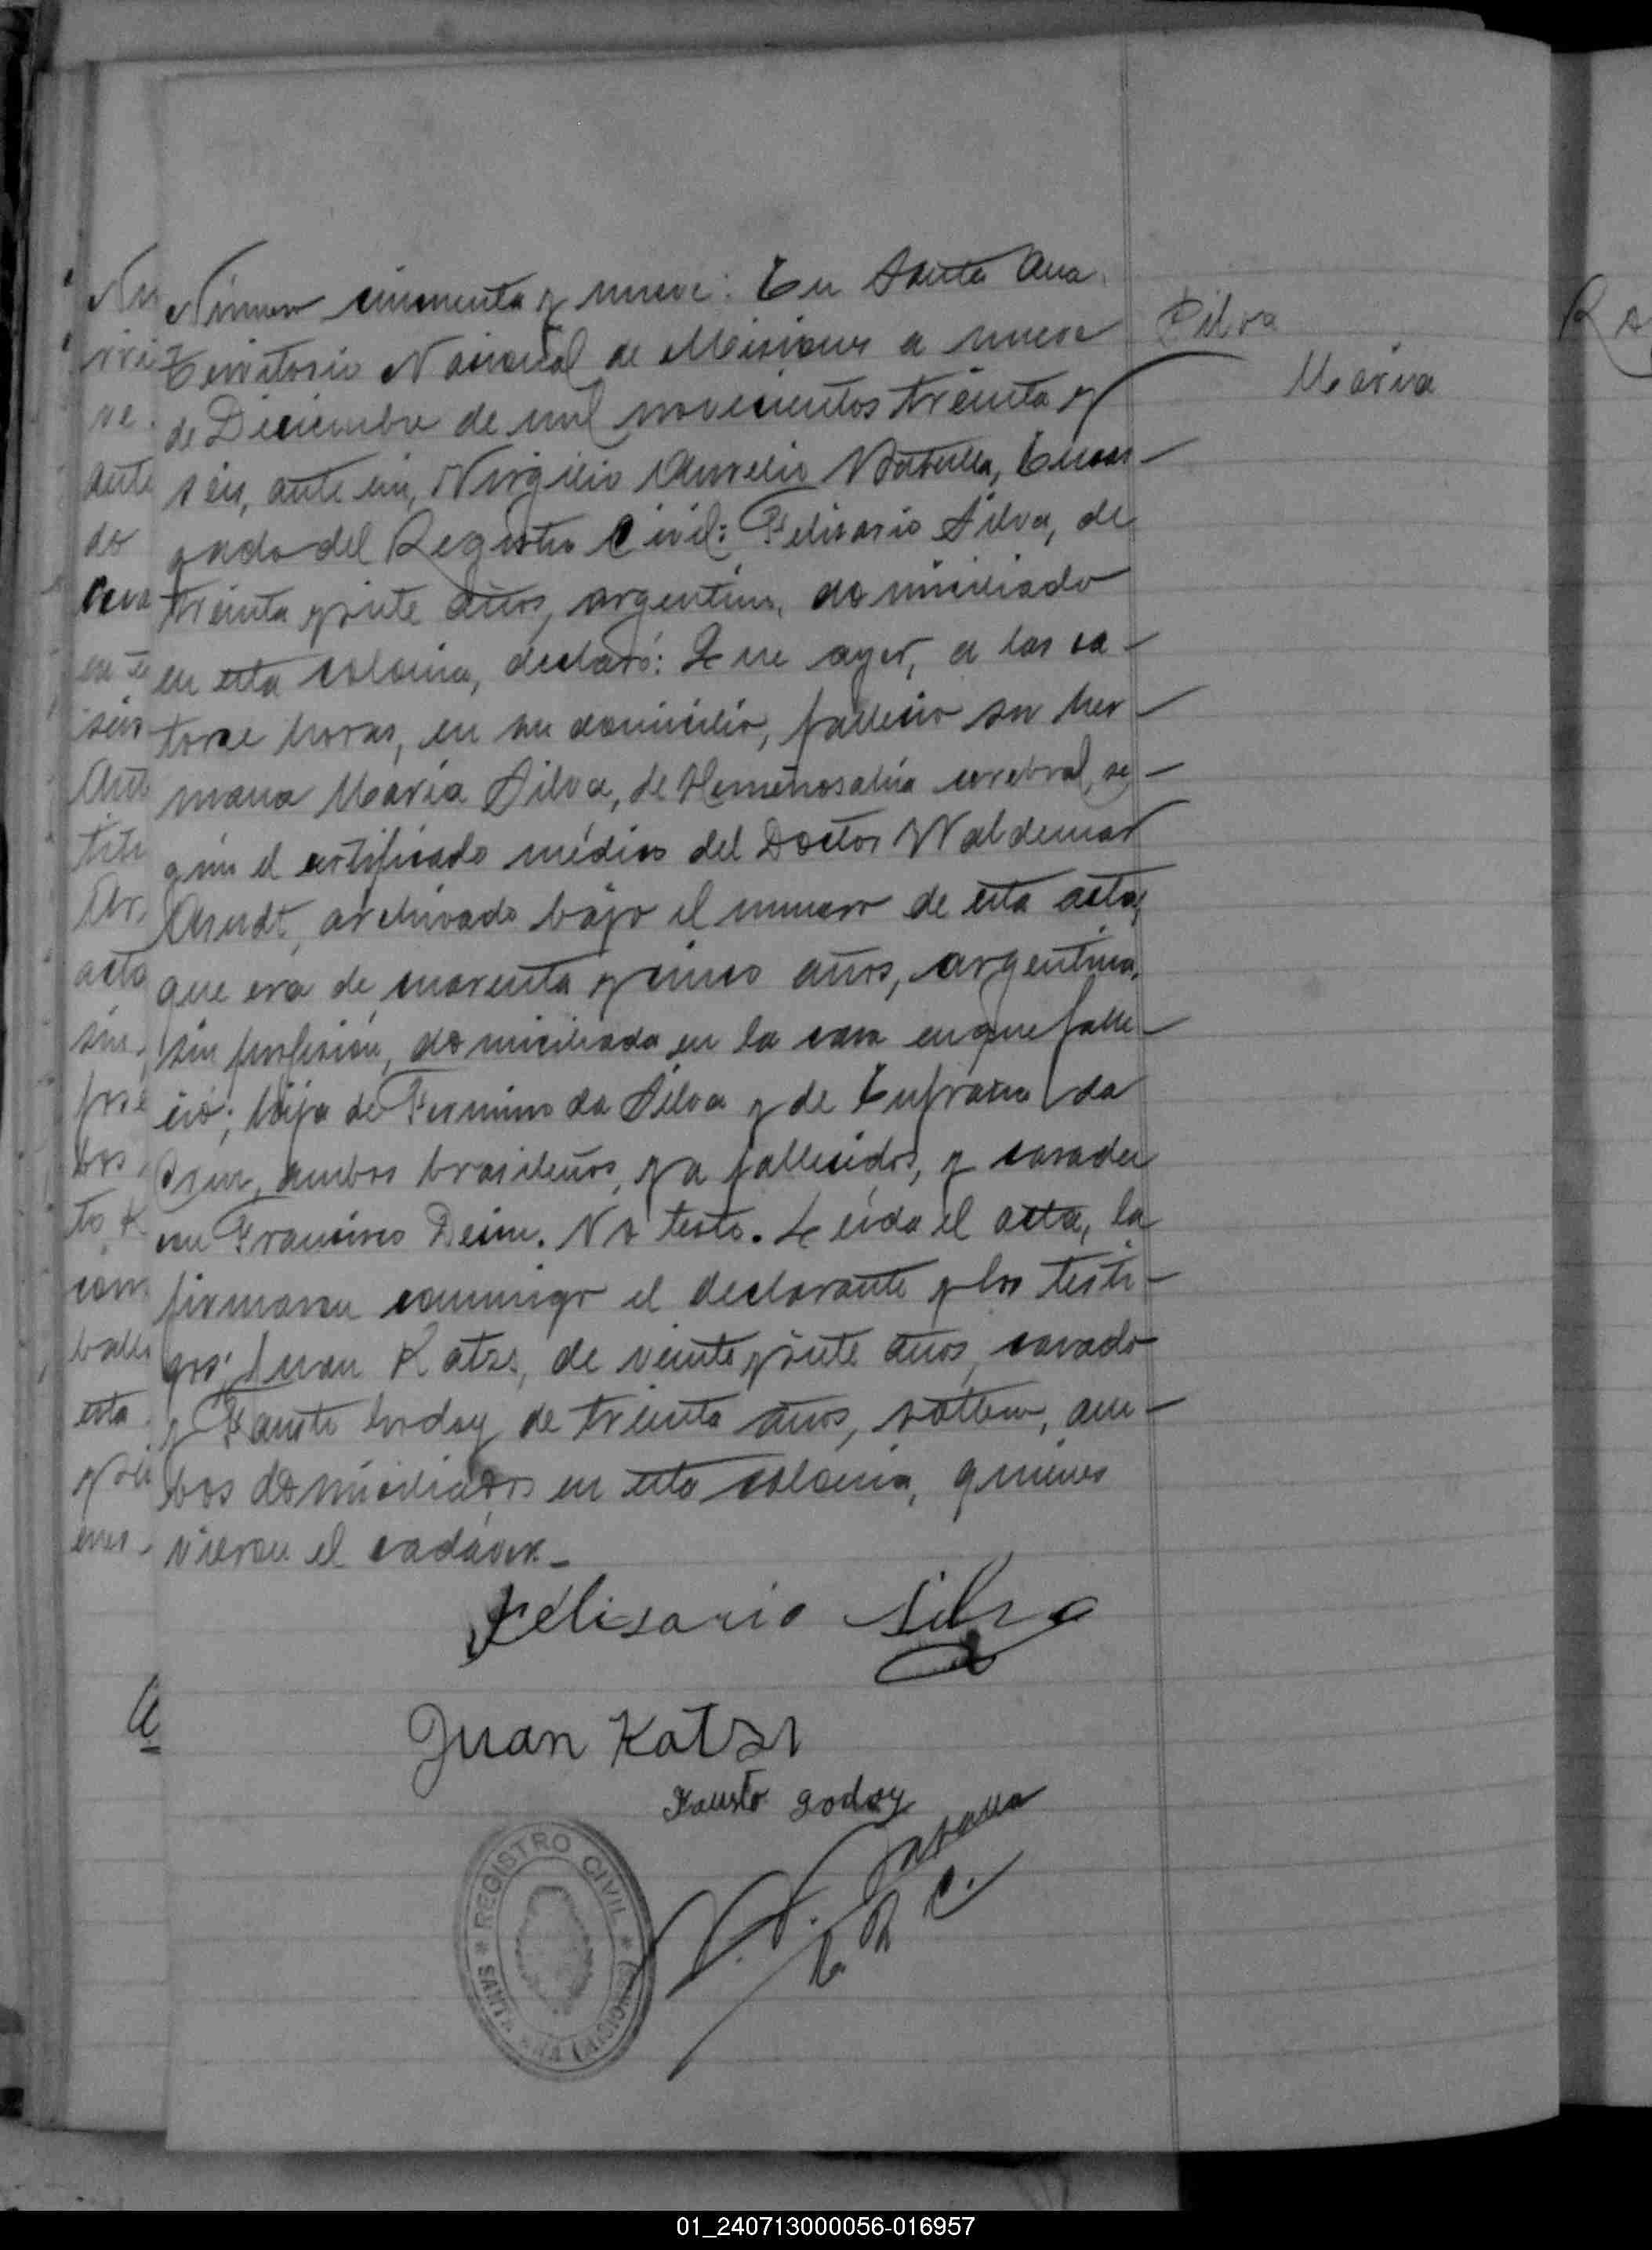 Número cincuenta y nueve: En Santa Ana
Territorio Nacional de Misiones a nueve
de Diciembre de mil novecientos treinta y
seis, ante mi, Virgilio Aurelio Encar-
gado del Registro Civil: Felisario Silva, de
treinta y siete años, argentino, domiciliado
en esta colonia, declaró: Que ayer, a las ca-
torce horas, en su domicilio, fallecio su her-
mana María Silva, de cerebral, se-
gún el certificado médico del Doctor Waldemar
Arndt, archivado bajo el numero de esta acta,
que era de cuarenta y cinco años, argentina,
sin profesión, domiciliada en la casa en que falle-
ció; hija de Fermino da Silva y de da
ambos brasileños, ya fallecidos, y casada
con Francisco No testó. Leída el acta, la
firmaron conmigo el declarante y los testi-
gos; Juan Katze, de veinte y siete años, casado
y Fausto Godoy de treinta años, soltero, am-
bos domiciliados en esta colonia, quienes
vieron el cadáver.-
Silva
María
Felisario Silva
Juan Katze
Fausto Godoy
E. R. C.
REGISTRO CIVIL
SANTA ANA (MISIONES)
01_240713000056-016957